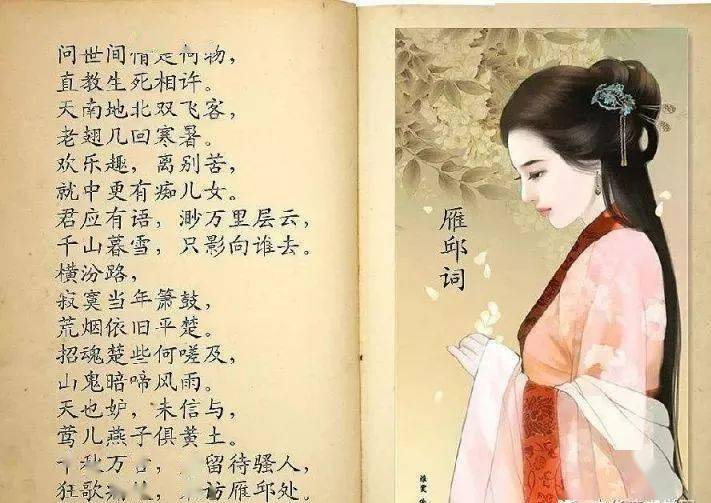 问世间情是何物，
直教生死相许。
天南地北双飞客，
老翅几回寒暑。
欢乐趣，离别苦，
就中更有痴儿女。
君应有语，渺万里层云，
千山暮雪，只影向谁去。
横汾路，
寂寞当年箫鼓，
荒烟依旧平楚。
招魂楚些何嗟及，
山鬼暗啼风雨。
天也妒，未信与，
莺儿燕子俱黄土。
千秋万古，留待骚人，
狂歌访雁邱处。
雁邱词